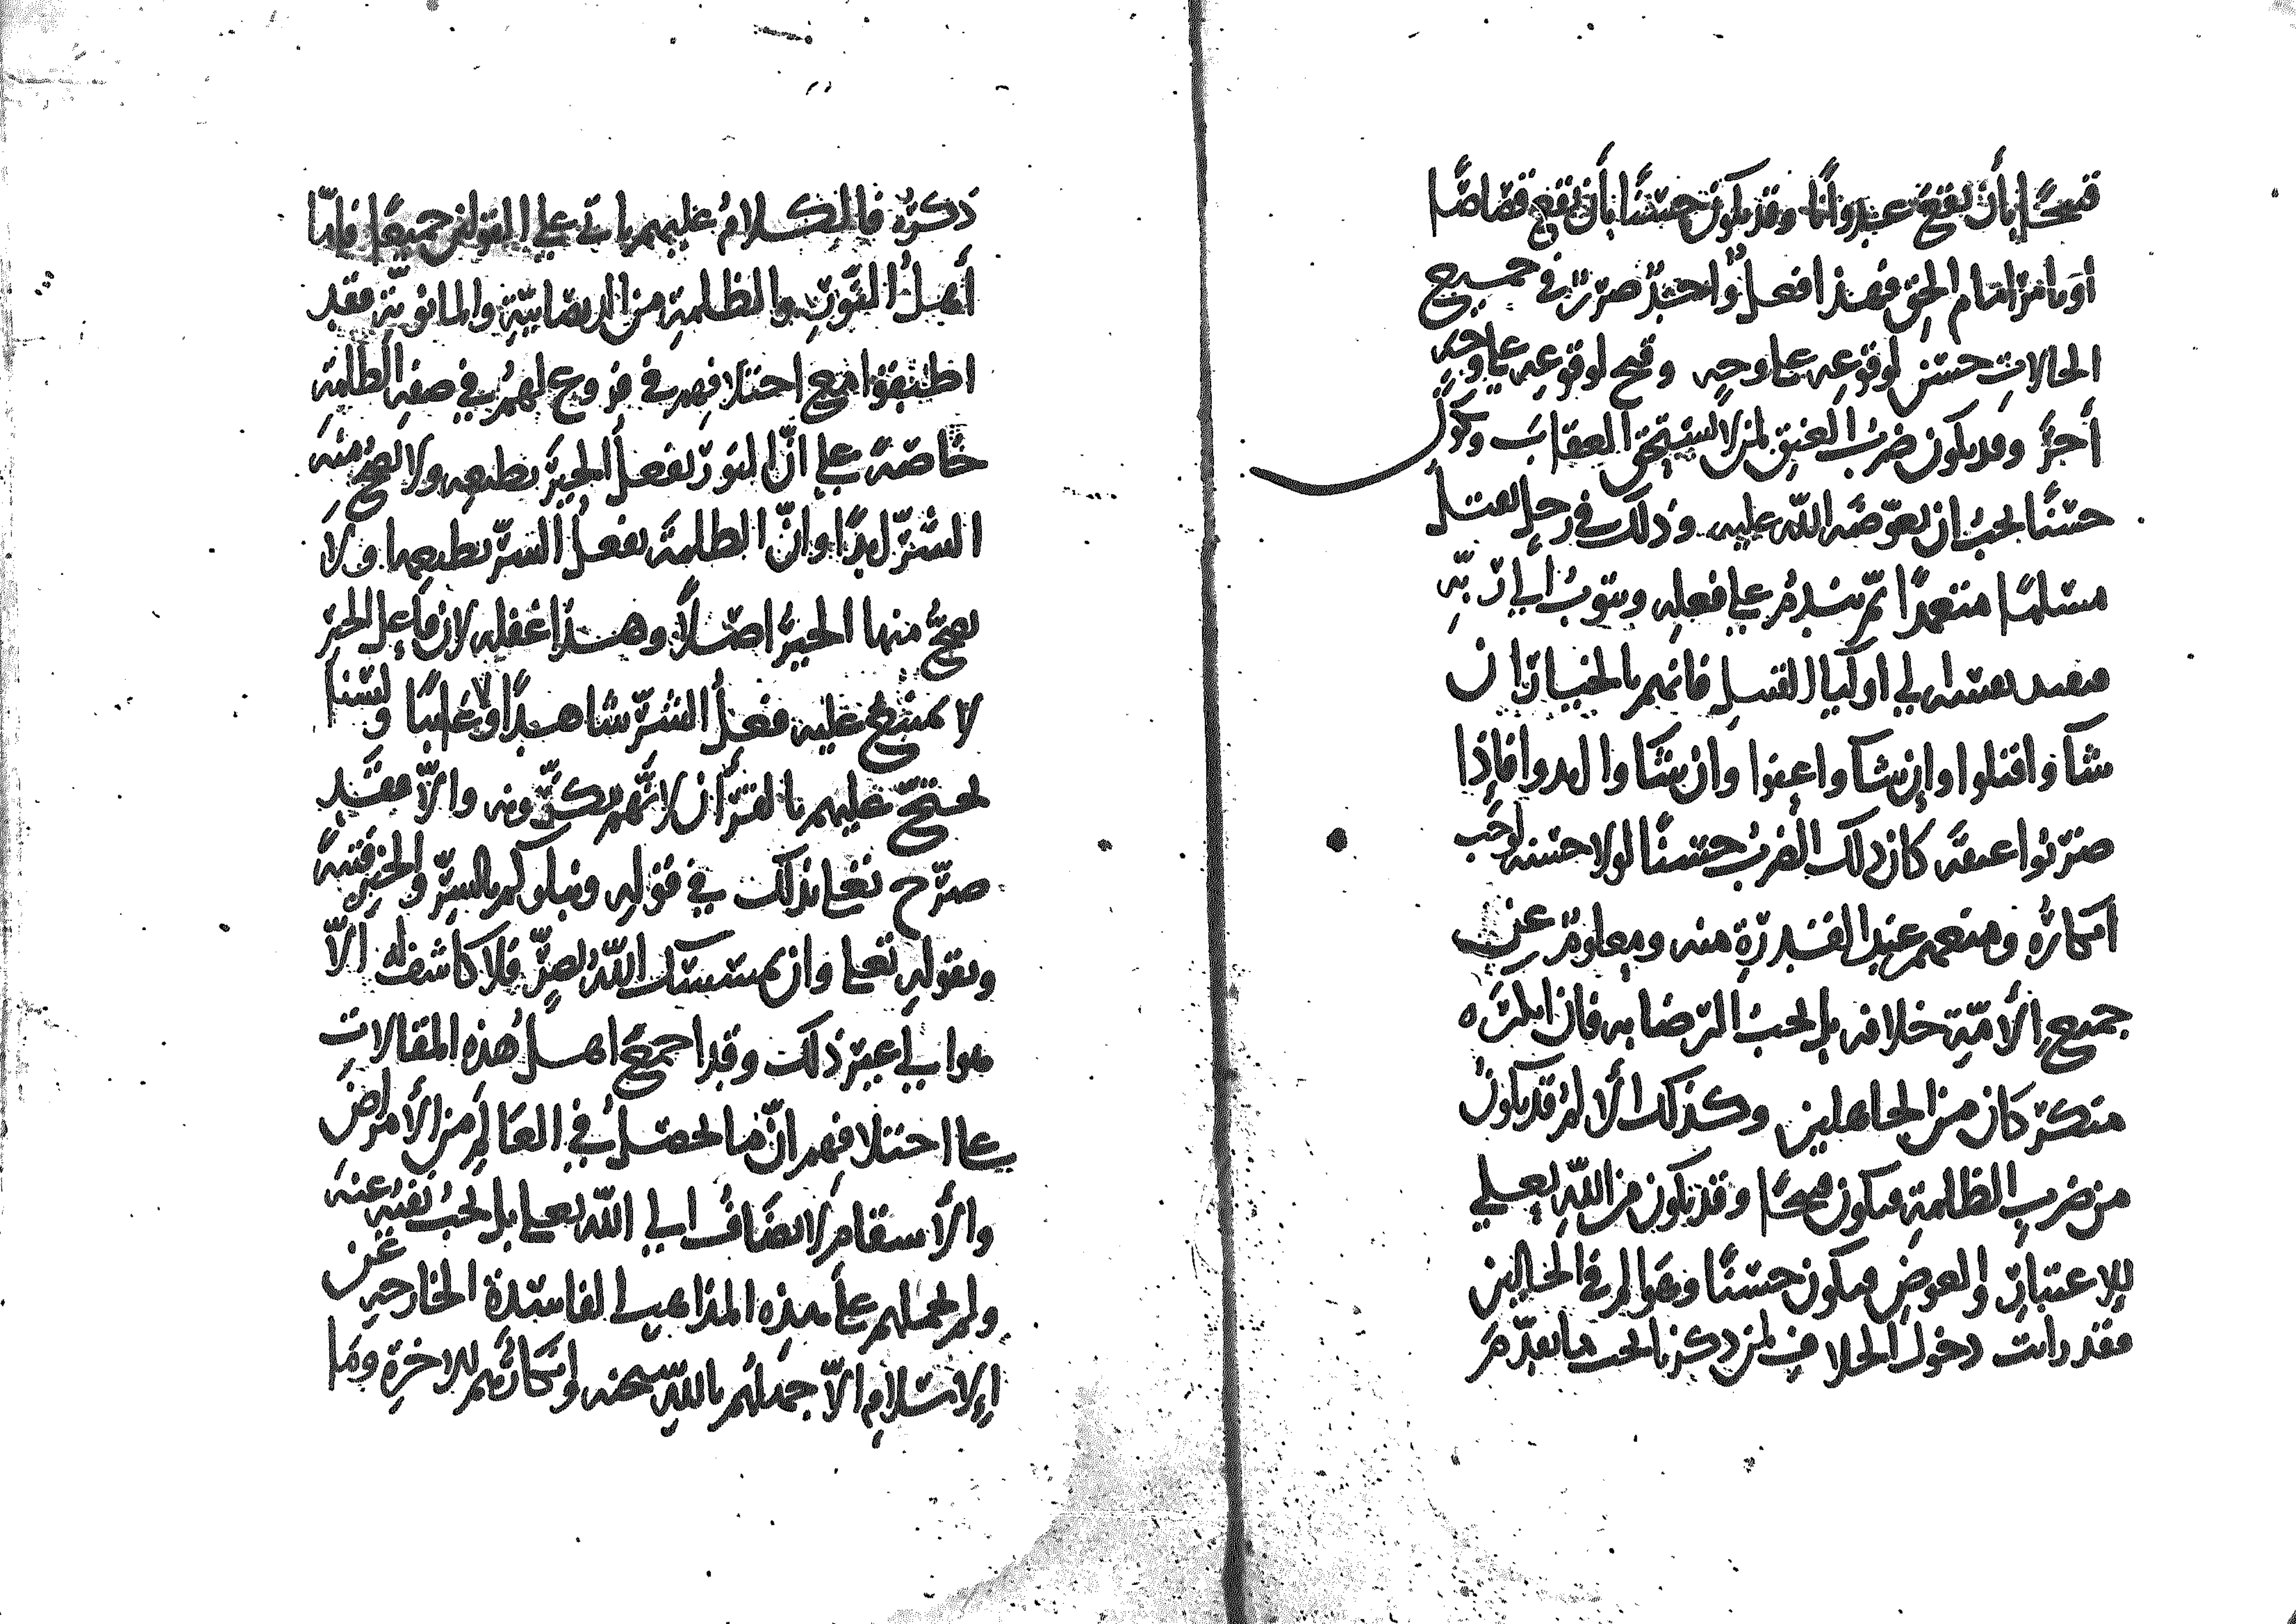 قبيحًا بأن يقع عدوانًا وقد يكون حسنًا بأن يقع قصاصًا
أو بأمر امام الحق فهذا فعلٌ واحدٌ صورته في جميع
الحالات حسن لوقوعه على وجه وقبح لوقوعه على وجه
أخرَ وقد يكون ضربُ العنق لمن لا يستحق العقابَ ويكون
حسنًا يجبُ ان يعوّضه الله عليه وذلك في رجلٍ يقتل
مسلمًا متعمدًا ثمّ يندمُ على فعله ويتوبُ الى ربّه
بنفسه الى اوليا القتيل فانهم بالخيار ان
شاوا قتلوا وان شاوا عفوا وان شاوا الدوا فاذا
ضربوا عنقه كان ذلك الضربُ حسنًا لولا حسنه لوجب
انكارُه ومنعهم عند القدرة منه ومعلومٌ من
جميع الأمّة خلافه بل يجبُ الرضا به فان انكره
منكرٌ كان من الجاهلين وكذلك الألم قد يكون
من ضرب الظلمة فيكون قبيحًا وقد يكون من الله تعلى
للاعتبار والعوض فيكون حسنًا وهو الم في الحالين
فقد رايت دخول الخلاف لمن ذكرنا بحب ما تقدّم
ذكرُه فالكلامُ عليهم ياتي على القولين جميعًا فامّا
أهلُ النّور والظلمة من الديصانيّة والمانويّة فقد
اطبقوا مع اختلافهم في فروع لهم في صفة الظلمة
خاصّة على انّ النور يفعلُ الخيرَ بطبعه ولا يصحّ منه
الشرّ ابدًا وانّ الظلمة تفعلُ الشرّ بطبعها ولا
يصحّ منها الخيرُ اصلًا وهذا غفلة لان فاعل الخير
لا يمتنع عليه فعلُ الشرّ شاهدًا وغائبًا ولسنا
نحتجّ عليهم بالقرأن لأنّهم ينكرونه والّا فقد
صرّح تعلى بذلك في قوله ونبلوكم بالشرّ والخير فتنةً
وبقوله تعلى وان يمسسك اللهُ بضرٍّ فلا كاشف له الّا
هو الى غير ذلك وقد اجمع اهلُ هذه المقالات
على اختلافهم انّ ما يحصلُ في العالم من الأمراض
والأسقام لا يضافُ الى الله تعلى بل يجبُ نفيُه عنه
ولم يحملهم على هذه المذاهب الفاسدة الخارجة عن
الإسلام الّا جهلُهم بالله سبحنه وانكارُهم للاخرة وما